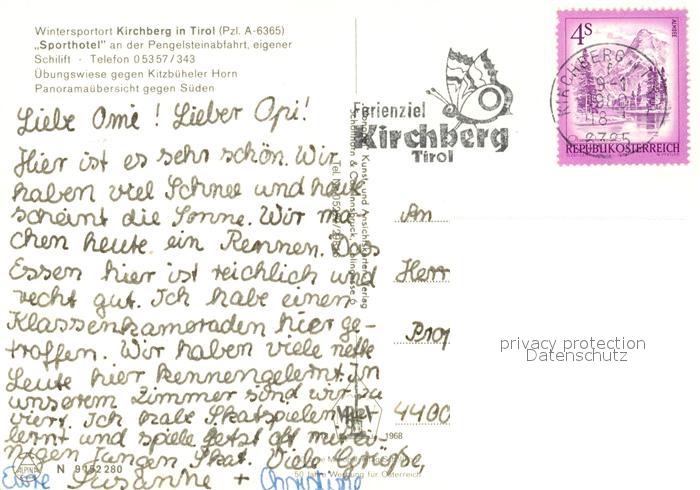 Wintersportort Kirchberg in Tirol (Pzl. A-6365)
„Sporthotel" an der Pengelsteinabfahrt, eigener
Schilift · Telefon 0 53 57 / 343
Übungswiese gegen Kitzbüheler Horn
Panoramaübersicht gegen Süden
4S
ALMSEE
REPUBLIK ÖSTERREICH
KIRCHBERG
Ferienziel
Kirchberg
Tirol
Liebe Omi! Lieber Opi!
Hier ist es sehr schön. Wir
haben viel Schnee und heute
scheint die Sonne. Wir ma
chen heute ein Rennen. Das
Essen hier ist reichlich und
recht gut. Ich habe einen
Klassenkameraden hier ge-
troffen. Wir haben viele nette
Leute hier kennengelernt. In
unserem Zimmer sind wir zu
viert. Ich habe Skatspielen ge
lernt und spiele jetzt oft mit ei-
nigen Jungen Skat. Viele Grüße,
Eure Susanne + Christiane
An
Herr
4400
1968
N 9152280
privacy protection
Datenschutz